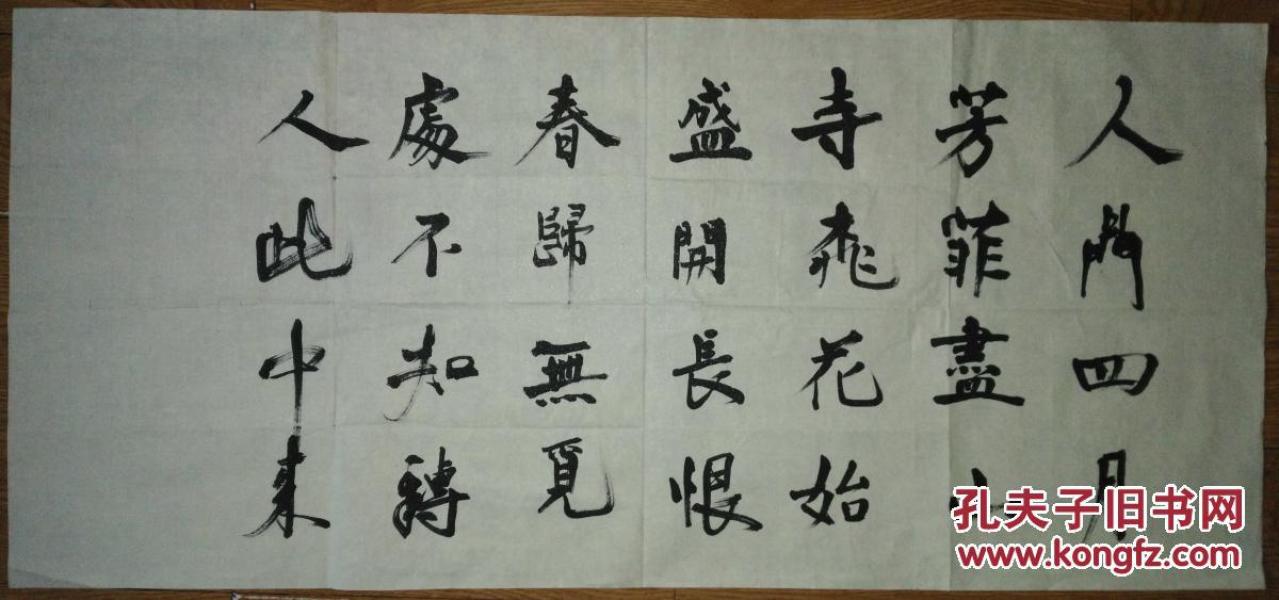 人間四月
芳菲盡山
寺桃花始
盛開長恨
春歸無覓
處不知轉
入此中來
孔夫子旧书网
www.kongfz.com